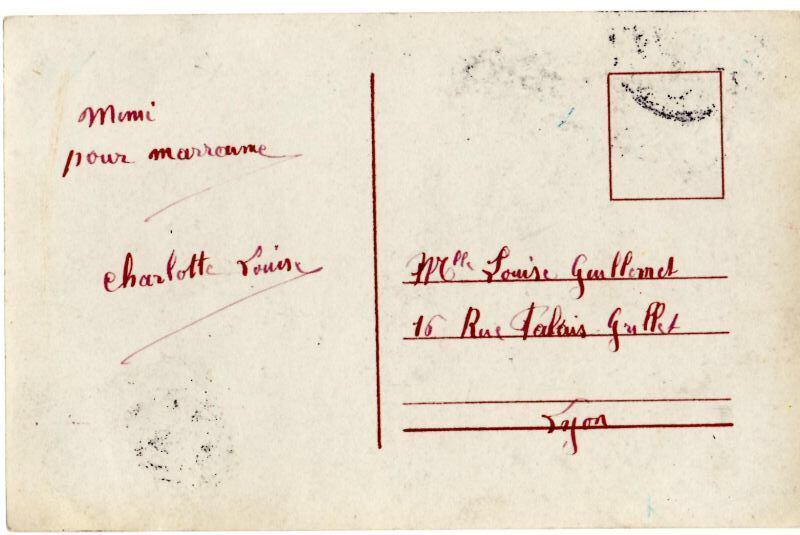 Mimi
pour marraine
Charlotte Louise
Mlle Louise Guillemet
16 Rue Palais Grillet
Lyon